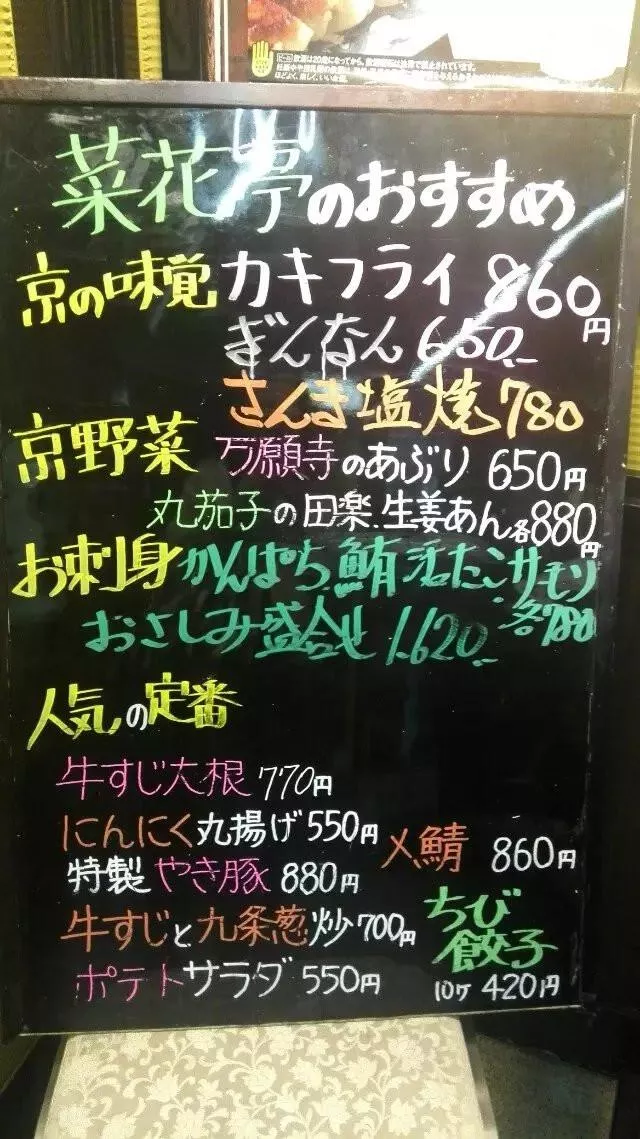 菜花亭のおすすめ
京の味覚 カキフライ 860円
ぎんなん 650.-
さんま塩焼 780
京野菜 万願寺のあぶり 650円
丸茄子の田楽.生姜あん各880円
お刺身 かんぱち 鮪 活たこ サーモン 各780
おさしみ盛合せ 1.620.-
人気の定番
牛すじ大根 770円
にんにく丸揚げ 550円
〆鯖 860円
特製やき豚 880円
牛すじと九条葱炒 700円
ちび餃子 10ケ 420円
ポテトサラダ 550円